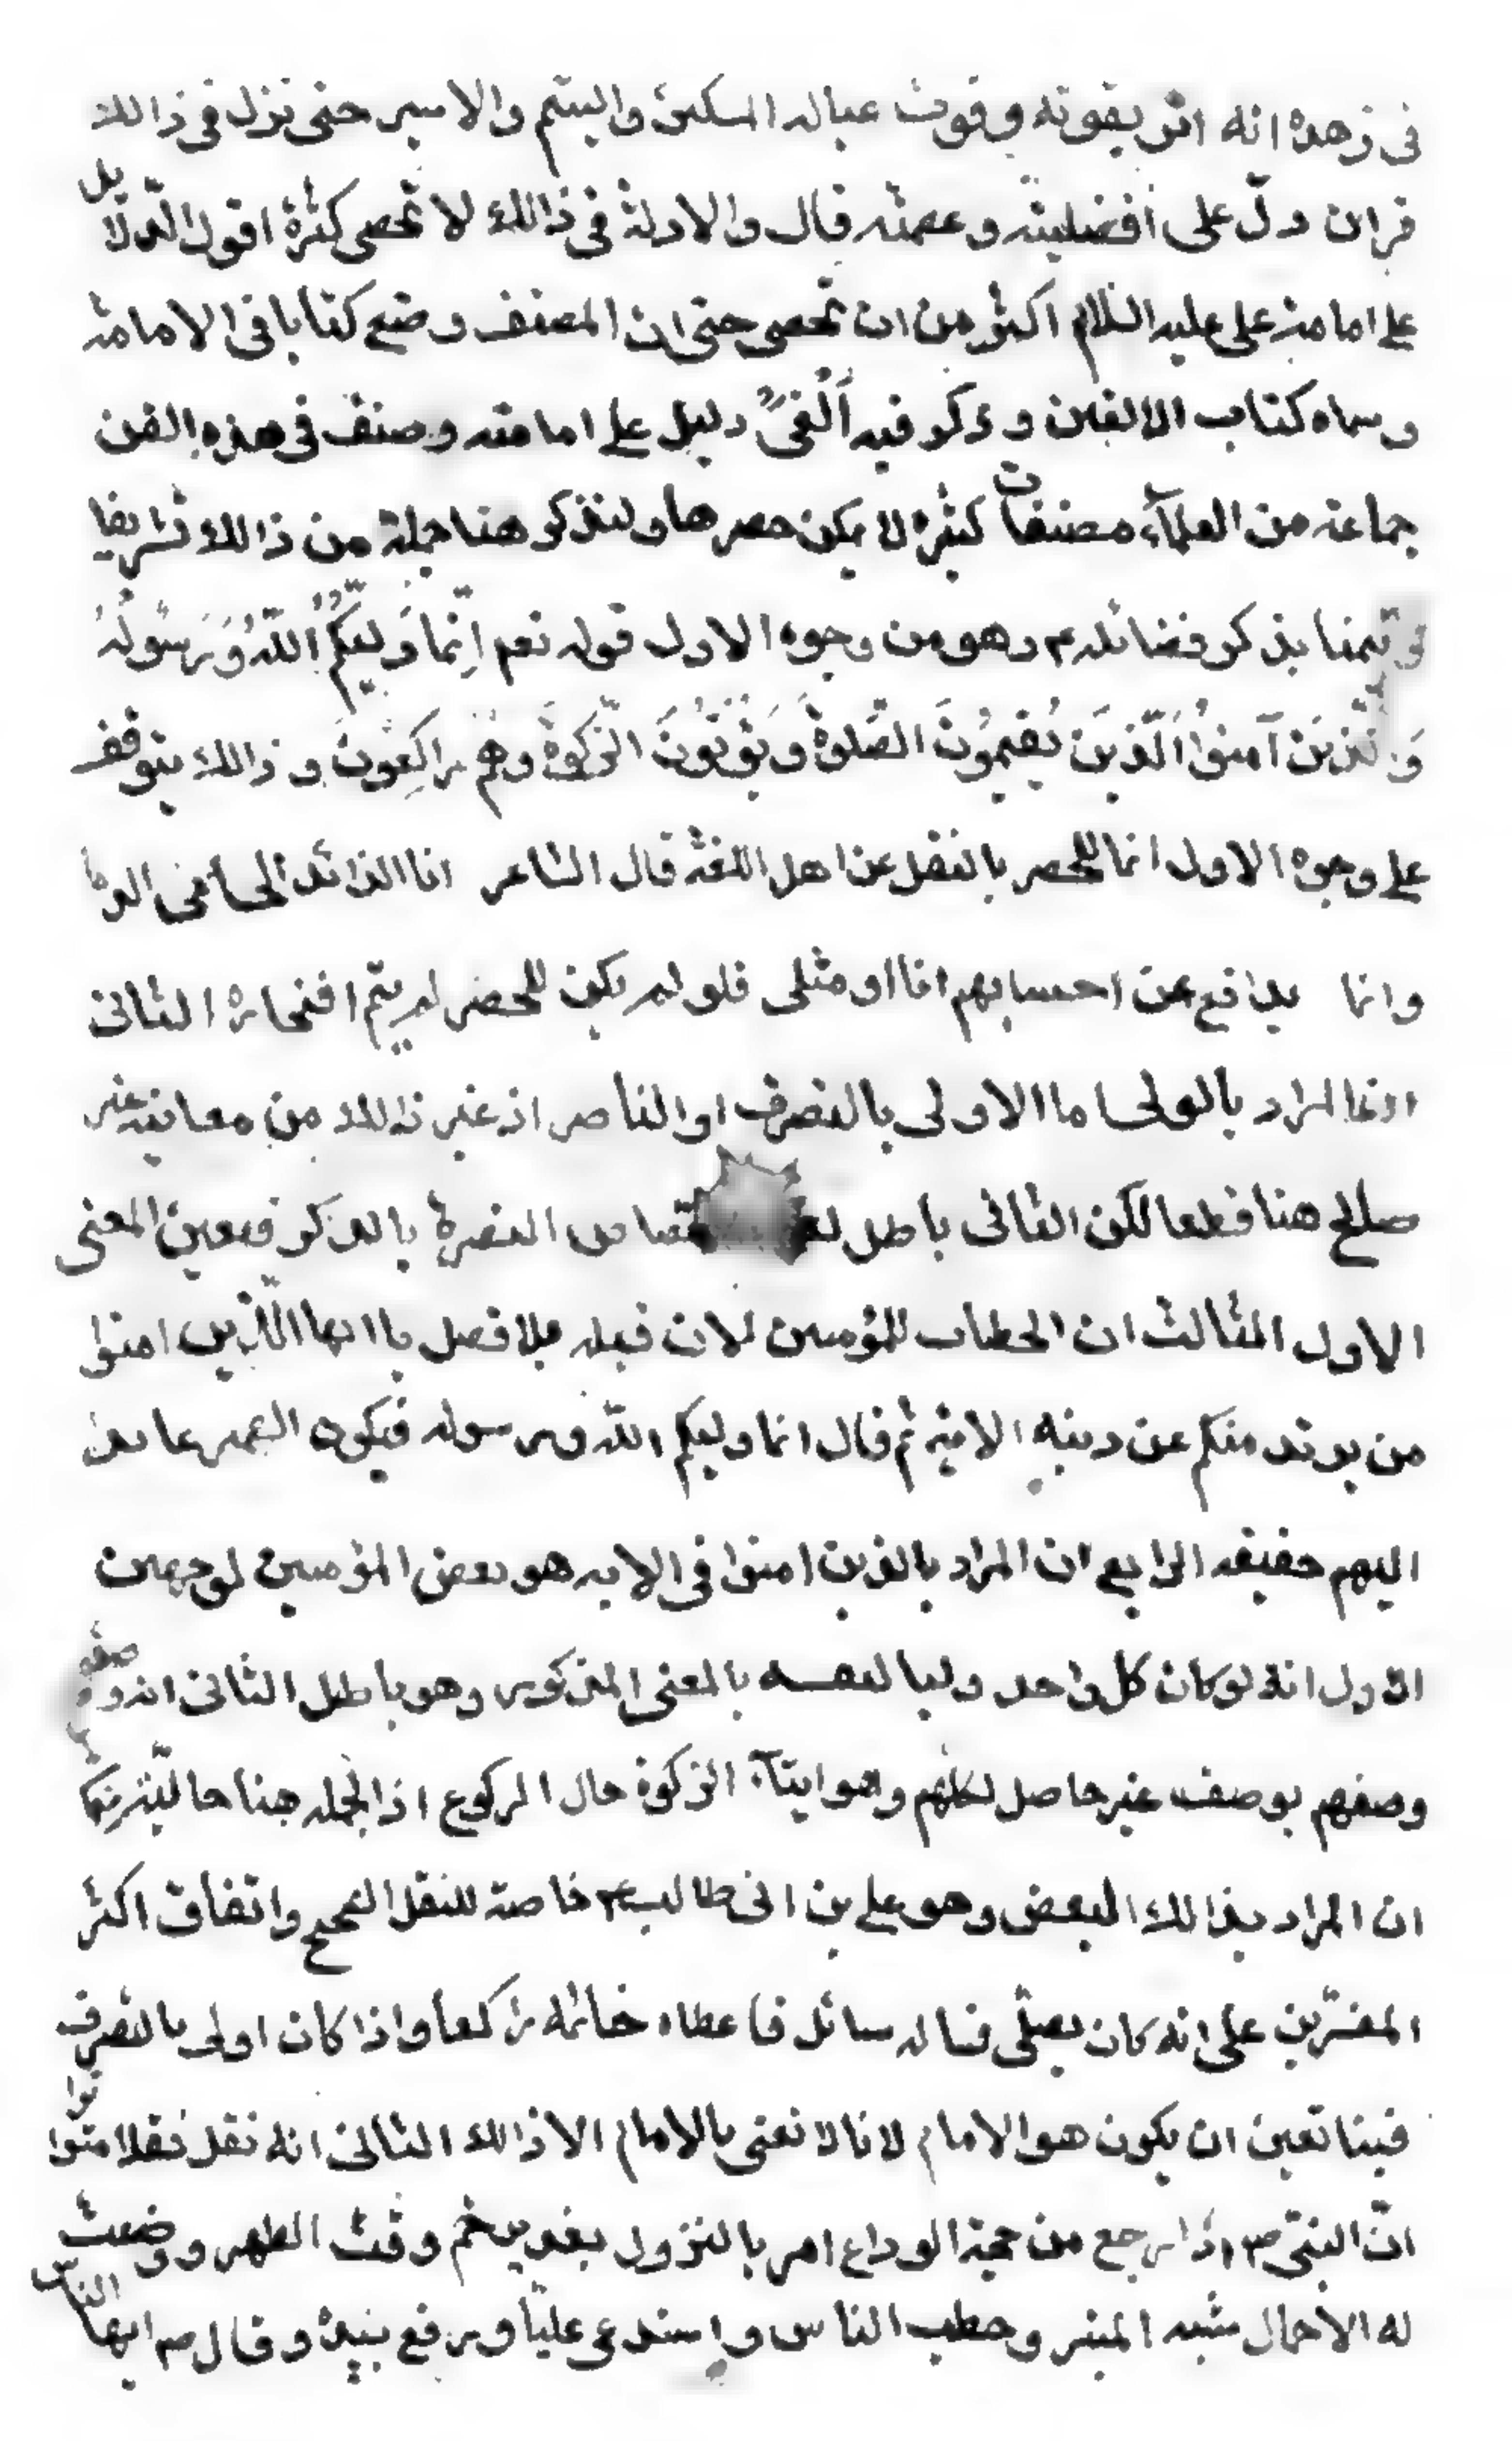 فى زهده انه اثر بقوته وقوت عياله المسكين واليتيم والاسير حتى نزل فى ذالك
قران دلّ على افضليته وعصمته قال والادلة فى ذالك لا تحصى كثرة اقول الدلايل
على امامة على عليه السلام اكثر من ان تحصى حتى ان المصنف وضع كتابا فى الامامة
وسماه كتاب الالفين وذكر فيه اَلْفَىْ دليل على امامته وصنف فى هذه الفن
جماعة من العلمآء مصنفات كثيرة لا يمكن حصرها ولنذكر هنا جملة من ذالك تشريفا
وتيمنا بذكر فضائله ع وهو من وجوه الاول قوله تعم اِنّما وَليكُمُ اللّهُ وَرَسُولُهُ
وَالَّذِينَ آمنوُا اَلّذينَ يُقيمُونَ الصّلوةَ وَيُؤتُونَ الزّكوةَ وهُم راكِعُونَ وذالك يتوقف
على وجوه الاول انما للحصر بالنقل عن اهل اللغة قال الشاعر انا الذائد الحامى الذما
وانما يدافع عن احسابهم انا او مثلى فلو لم يكن للحصر لم يتم افتخاره الثانى
ان المراد بالولى اما الاولى بالتصرف او الناصر اذ غير ذالك من معانيه غير
صالح هنا قطعا لكن الثانى باطل لعدم اختصاص النصرة بالمذكور فتعين المعنى
الاول الثالث ان الخطاب للمؤمنين لان قبله بلا فصل يا ايها الّذين امنوا
من يرتد منكم عن دينه الاية ثم قال انما وليكم اللّه ورسوله فيكون الضمير عايدا
اليهم حقيقه الرابع ان المراد بالذين امنوا فى الايه هو بعض المؤمنين لوجهين
الاول انه لو كان كل واحد وليا لنفسه بالمعنى المذكور وهو باطل الثانى انه
وصفهم بوصف غير حاصل لكلهم وهو ايتآء الزكوة حال الركوع اذ الجمله هنا حاليّة
ان المراد بذالك البعض وهو على بن ابى طالب ع خاصة للنقل الصحيح واتفاق اكثر
المفسّرين على انه كان يصلّى فساله سائل فاعطاه خاتمه راكعا واذا كان اولى بالتصرف
فينا تعين ان يكون هو الامام لانا لا نعنى بالامام الا ذالك الثانى انه نقل نقلا متواترا
انّ النبىّ ص اذ رجع من حجة الوداع امر بالنزول بغدير خم وقت الظهر ووضعت
له الاحمال شبه المنبر وخطب الناس واستدعى عليّا ورفع بيده وقال ص ايها الناس